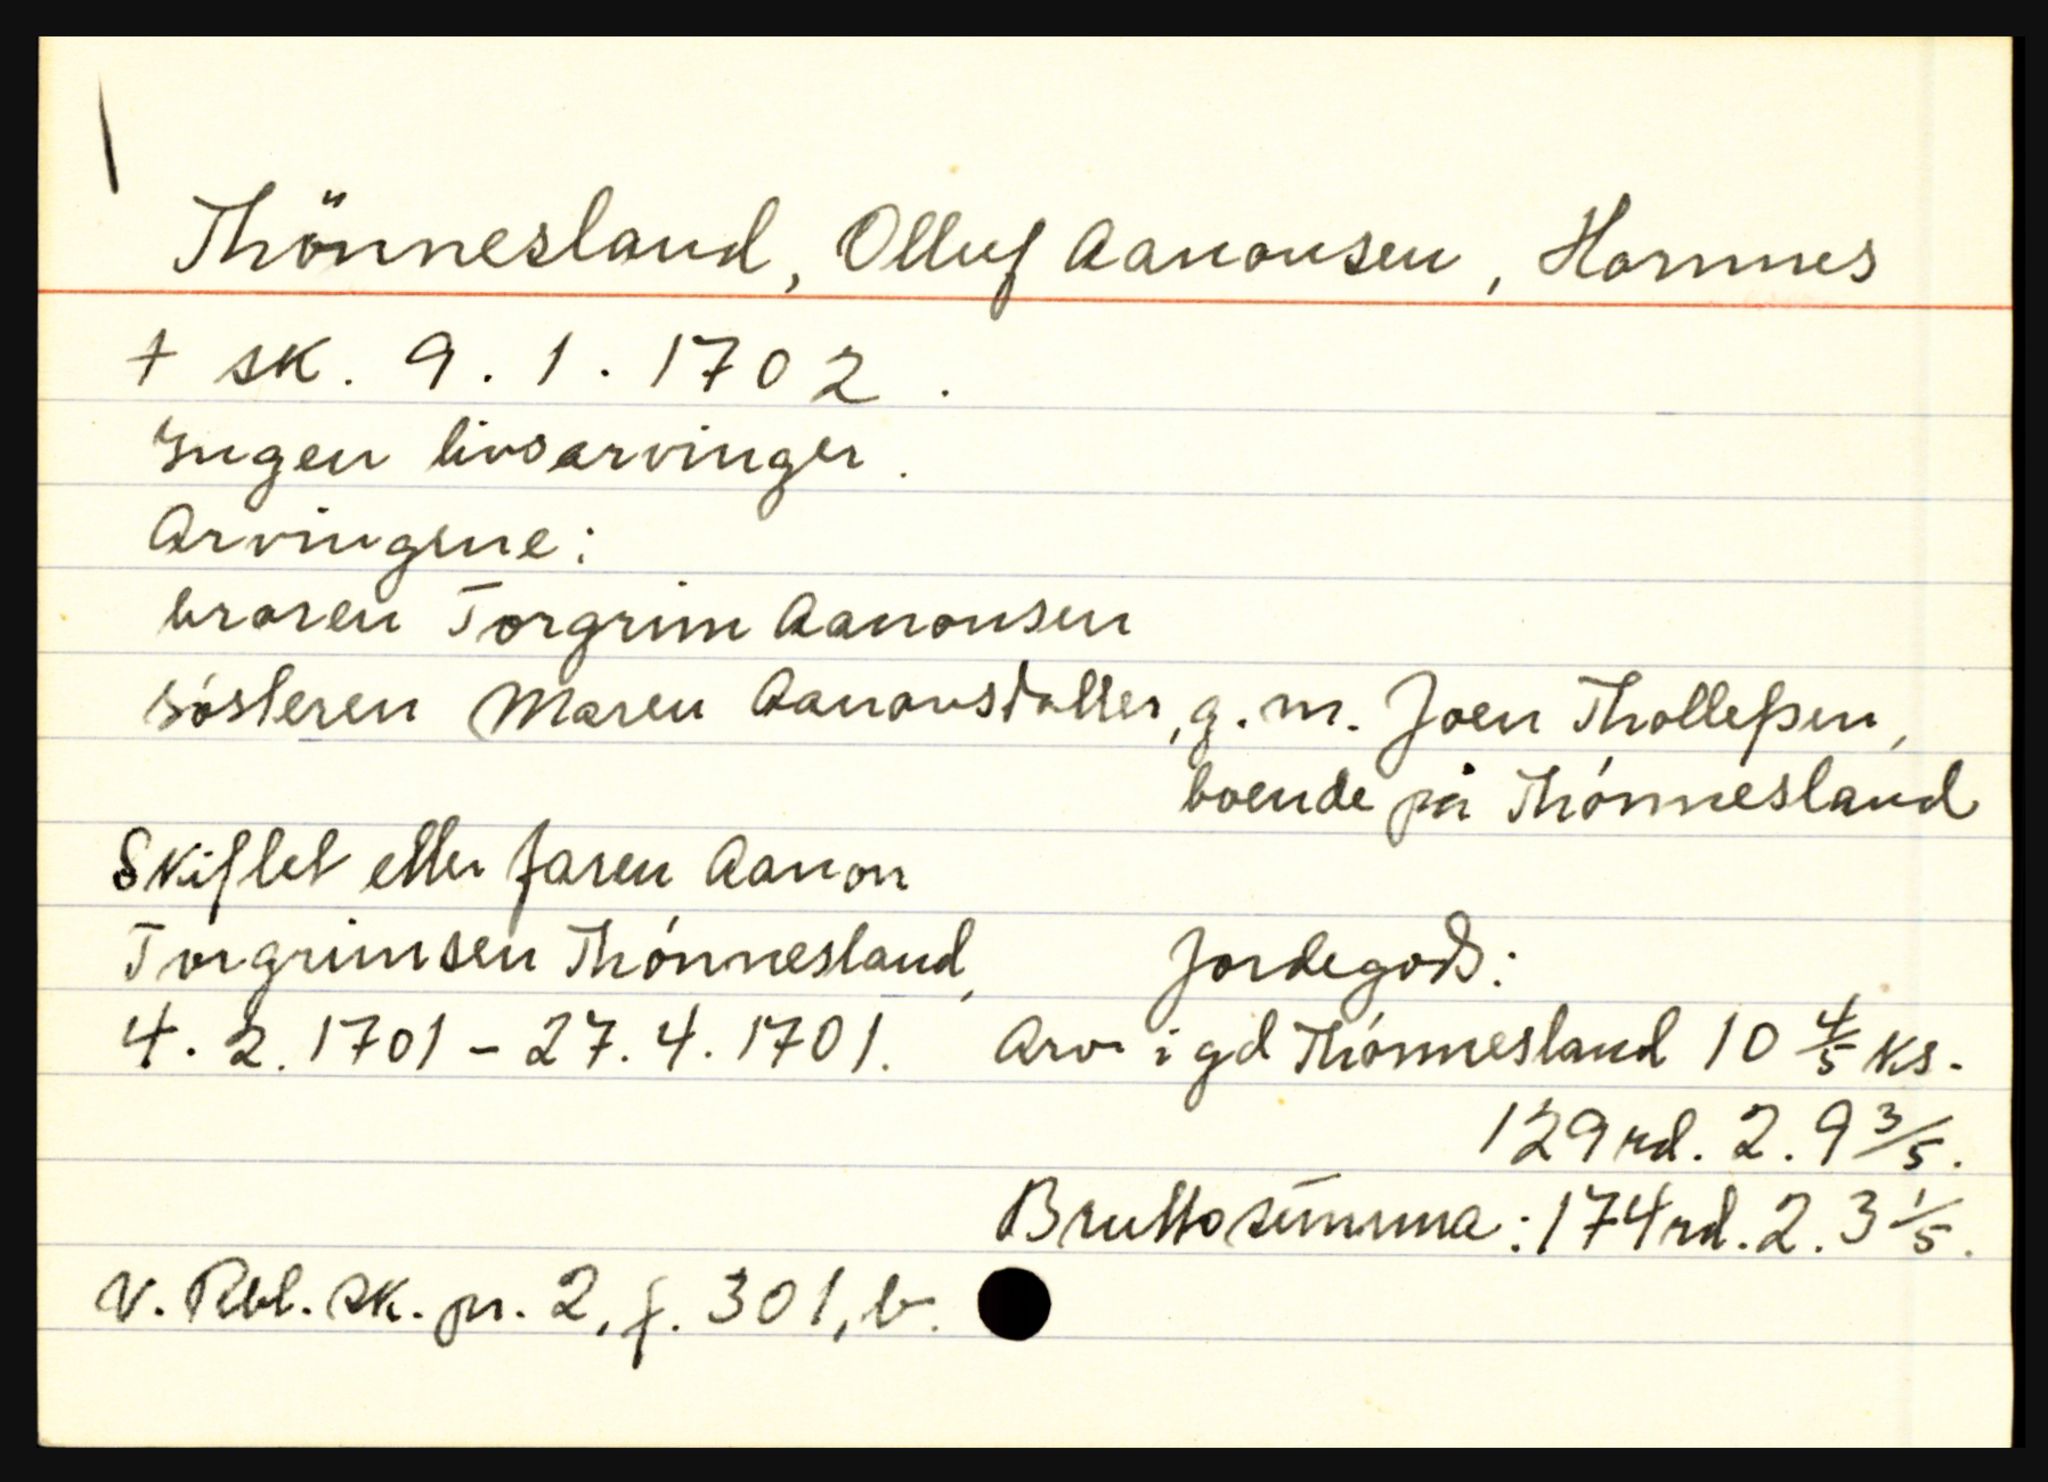 Thönnesland, Olluf Aanonsen, Hornnes
+ sk. 9.1.1702.
Ingen livsarvinger.
Arvingene:
broren Torgrim Aanonsen
sósteren Maren Aanonsdatter, g.m. Joen Tholleßen,
boende på Thónnesland
Skiftet etter faren Aanon
Torgrimsen Thónnesland,
4.2.1701 - 27.4.1701.
Jordegods:
Arv i gd Thónnesland 10 4/5 ks.
129 rd. 2. 9 3/5.
Bruttosumma: 174 rd. 2. 3 1/5.
V. Rbl. sk. pr. 2, f. 301, b.